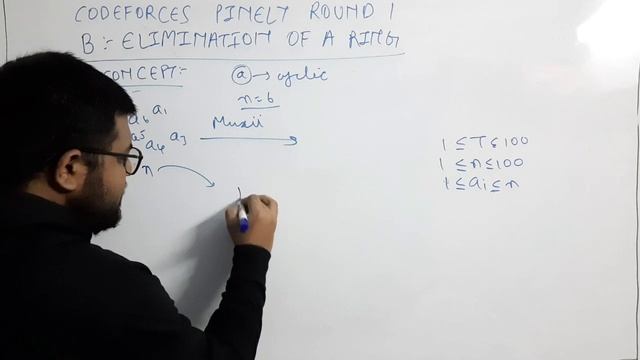 CODEFORCES PINELY ROUND 1
B:- ELIMINATION OF A RING
CONCEPT:-
a → cyclic
n=6
a6 a1
a5 a4 a3
n
1 ≤ T ≤ 100
1 ≤ n ≤ 100
1 ≤ ai ≤ n